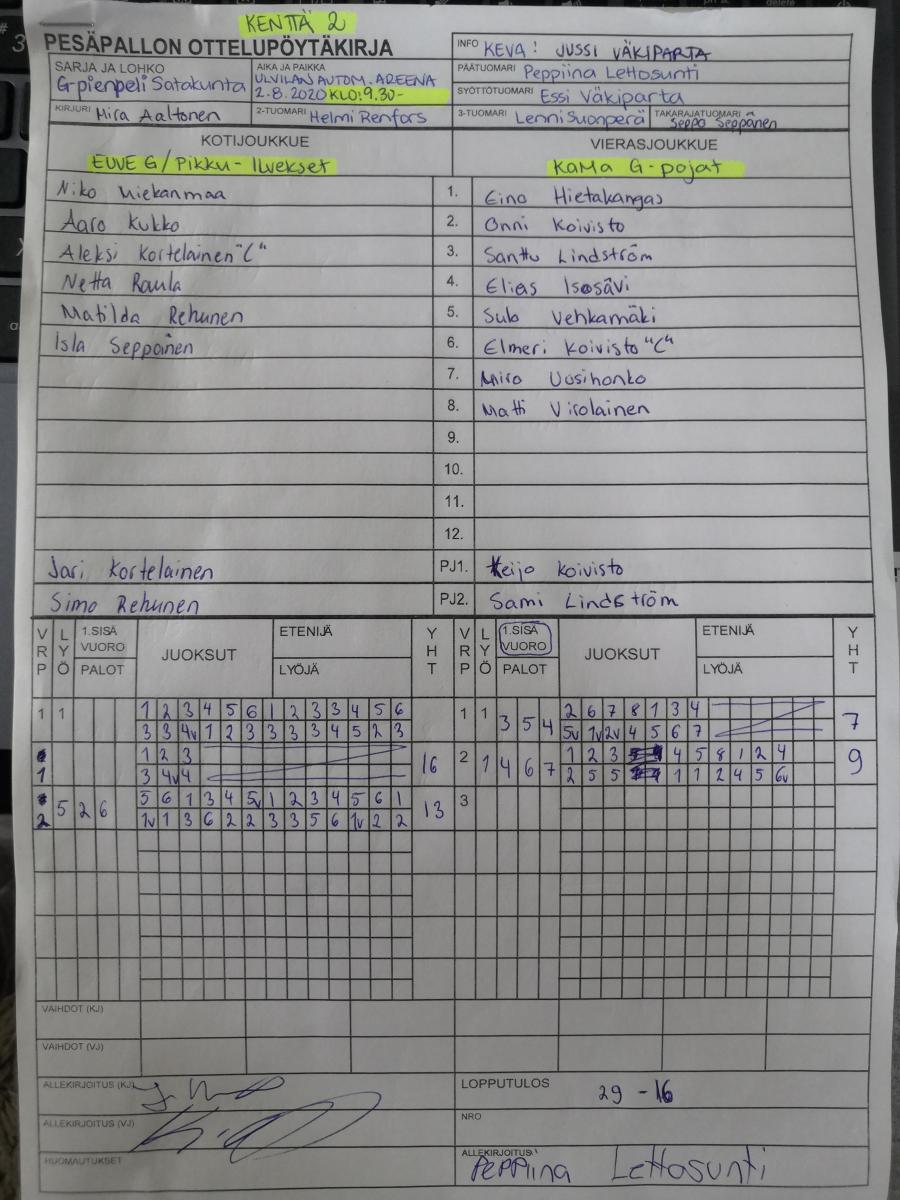 KENTTÄ 2
PESÄPALLON OTTELUPÖYTÄKIRJA
INFO KEVA! JUSSI VÄKIPARTA
SARJA JA LOHKO
G-pienpeli Satakunta
AIKA JA PAIKKA
ULVILAN AUTOM. AREENA
2.8.2020 KLO: 9.30-
PÄÄTUOMARI Peppiina Lettosunti
SYÖTTÖTUOMARI Essi Väkiparta
KIRJURI Mira Aaltonen
2-TUOMARI Helmi Renfors
3-TUOMARI Lenni Suonperä
TAKARAJATUOMARI Seppo Seppänen
KOTIJOUKKUE
VIERASJOUKKUE
EUVE G/Pikku-Ilvekset
KaMa G-pojat
Niko Miekanmaa 1. Eino Hietakangas
Aaro Kukko 2. Onni Koivisto
Aleksi Kortelainen "C" 3. Santtu Lindström
Netta Raula 4. Elias Isosävi
Matilda Rehunen 5. Sulo Vehkamäki
Isla Seppänen 6. Elmeri Koivisto "C"
7. Miro Uusihonko
8. Matti Virolainen
9.
10.
11.
12.
Jari Kortelainen PJ1. Keijo Koivisto
Simo Rehunen PJ2. Sami Lindström
VRP LYÖ 1.SISÄ VUORO PALOT JUOKSUT ETENIJÄ LYÖJÄ YHT VRP LYÖ 1.SISÄ VUORO PALOT JUOKSUT ETENIJÄ LYÖJÄ YHT
1 1 1 2 3 4 5 6 1 2 3 3 4 5 6 1 1 3 5 4 2 6 7 8 1 3 4 7
3 3 4v 1 2 3 3 3 3 4 5 2 3 5v 1v 2v 4 5 6 7
1 1 2 3 16 2 1 4 6 7 1 2 3 4 5 8 1 2 4 9
3 4v 4 2 5 5 1 1 2 4 5 6v
2 5 2 6 5 6 1 3 4 5v 1 2 3 4 5 6 1 13 3
1v 1 3 6 2 2 3 3 5 6 1v 2 2
VAIHDOT (KJ)
VAIHDOT (VJ)
ALLEKIRJOITUS (KJ)
LOPPUTULOS 29 - 16
ALLEKIRJOITUS (VJ)
NRO
HUOMAUTUKSET
ALLEKIRJOITUS
Peppiina Lettosunti